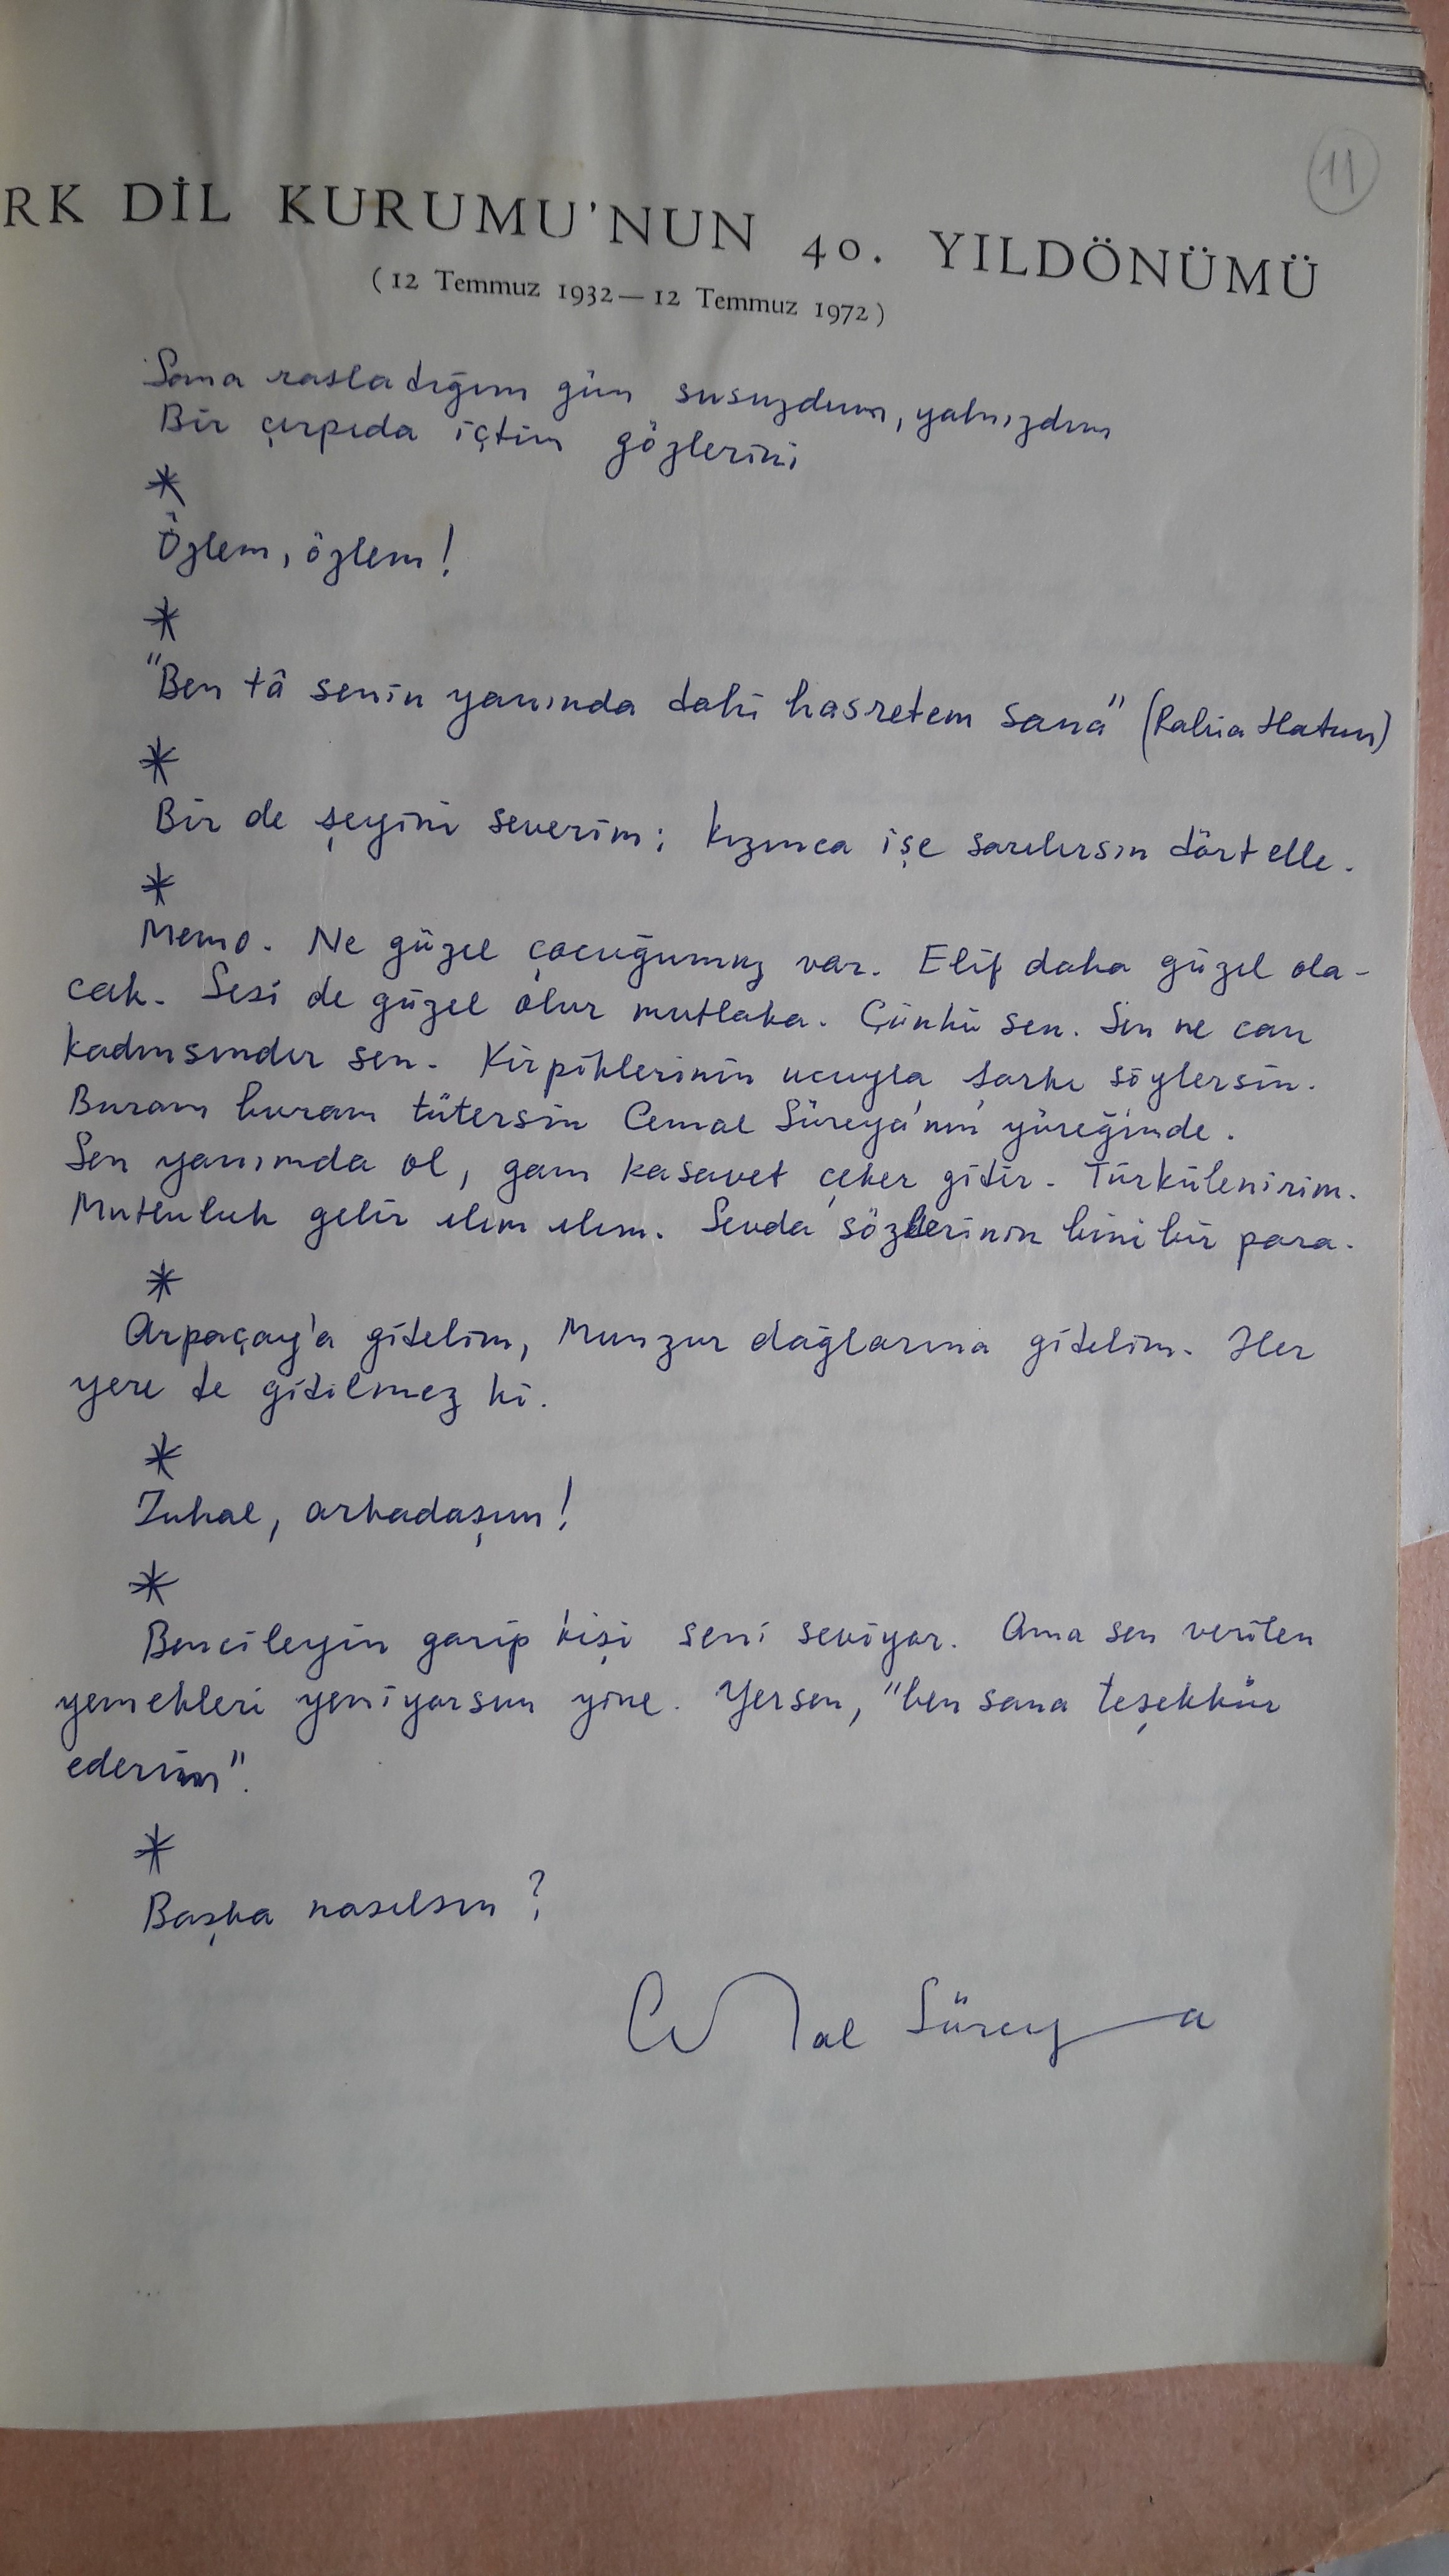 11
RK DİL KURUMU'NUN 40. YILDÖNÜMÜ
(12 Temmuz 1932—12 Temmuz 1972)
Sana rasladığım gün susuzdum, yalnızdım
Bir çırpıda içtim gözlerini
*
Özlem, özlem!
*
"Ben tâ senin yanında dahi hasretem sana" (Rabia Hatun)
*
Bir de şeyini severim; kızınca işe sarılırsın dört elle.
*
Memo. Ne güzel çocuğumuz var. Elif daha güzel ola-
cak. Sesi de güzel olur mutlaka. Çünkü sen. Sen ne can
kadınsındır sen. Kirpiklerinin ucuyla şarkı söylersin.
Buram buram tütersin Cemal Süreya'nın yüreğinde.
Sen yanımda ol, gam kasavet çeker gider. Türkülenirim.
Mutluluk gelir ılım ılım. Sevda sözlerinin bini bir para.
*
Arpaçay'a gidelim, Munzur dağlarına gidelim. Her
yere de gidilmez ki.
*
Zuhal, arkadaşım!
*
Bencileyin garip kişi seni seviyor. Ama sen verilen
yemekleri yemiyorsun yine. Yersen, "ben sana teşekkür
ederim".
*
Başka nasılsın?
Cemal Süreya